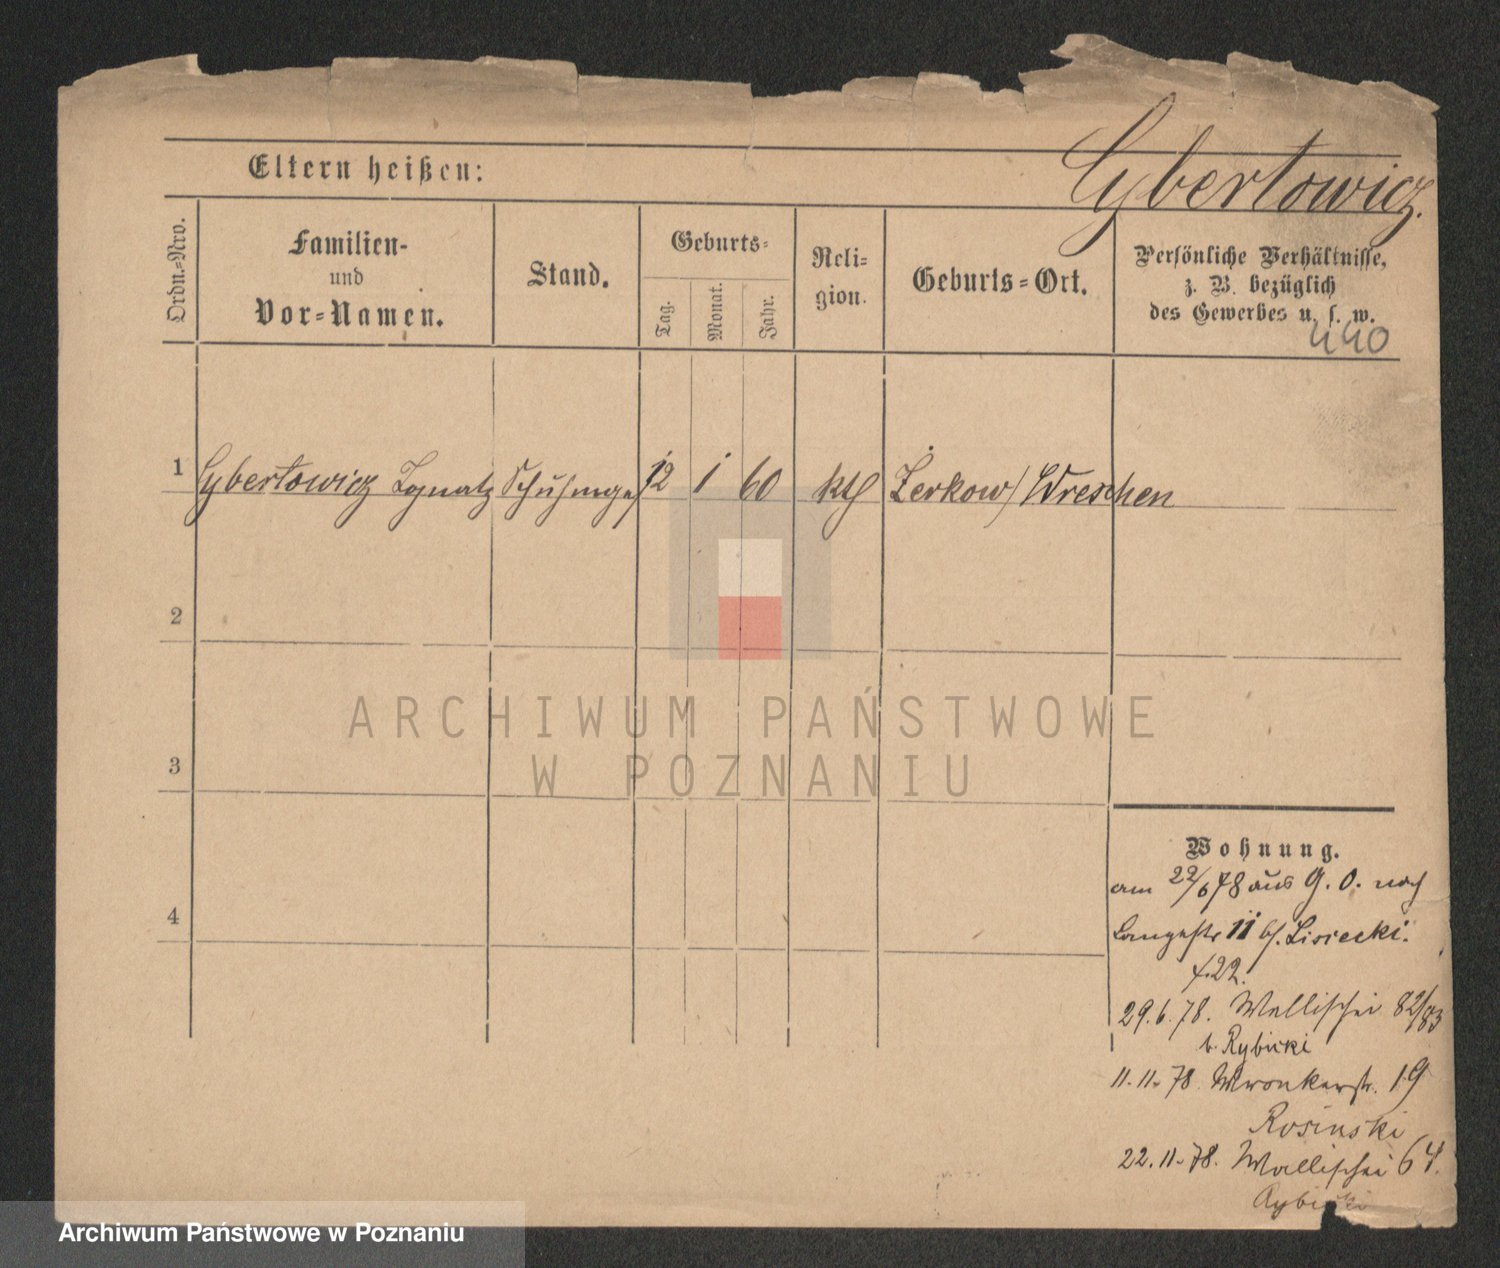 Cybertowicz.
Eltern heißen:
Ordn.-Nro.
Familien-
und
Vor-Namen.
Stand.
Geburts-
Tag.
Monat.
Jahr.
Reli-
gion.
Geburts-Ort.
Persönliche Verhältnisse,
z. B. bezüglich
des Gewerbes u. s. w.
440
1 Cybertowicz Ignatz Schuhmges 12 1 60 kth Żerkow / Wreschen
2
3
4
ARCHIWUM PAŃSTWOWE
W POZNANIU
Wohnung.
am 22/6 78 aus G. O. nach
Langestr 11 bh. Lisiecki.
f. 22.
29.6.78. Wallischei 82/83
b. Rybicki
11.11.78. Wronkerstr. 19
Rosinski
22.11.78. Wallischei 64.
Rybicki
Archiwum Państwowe w Poznaniu